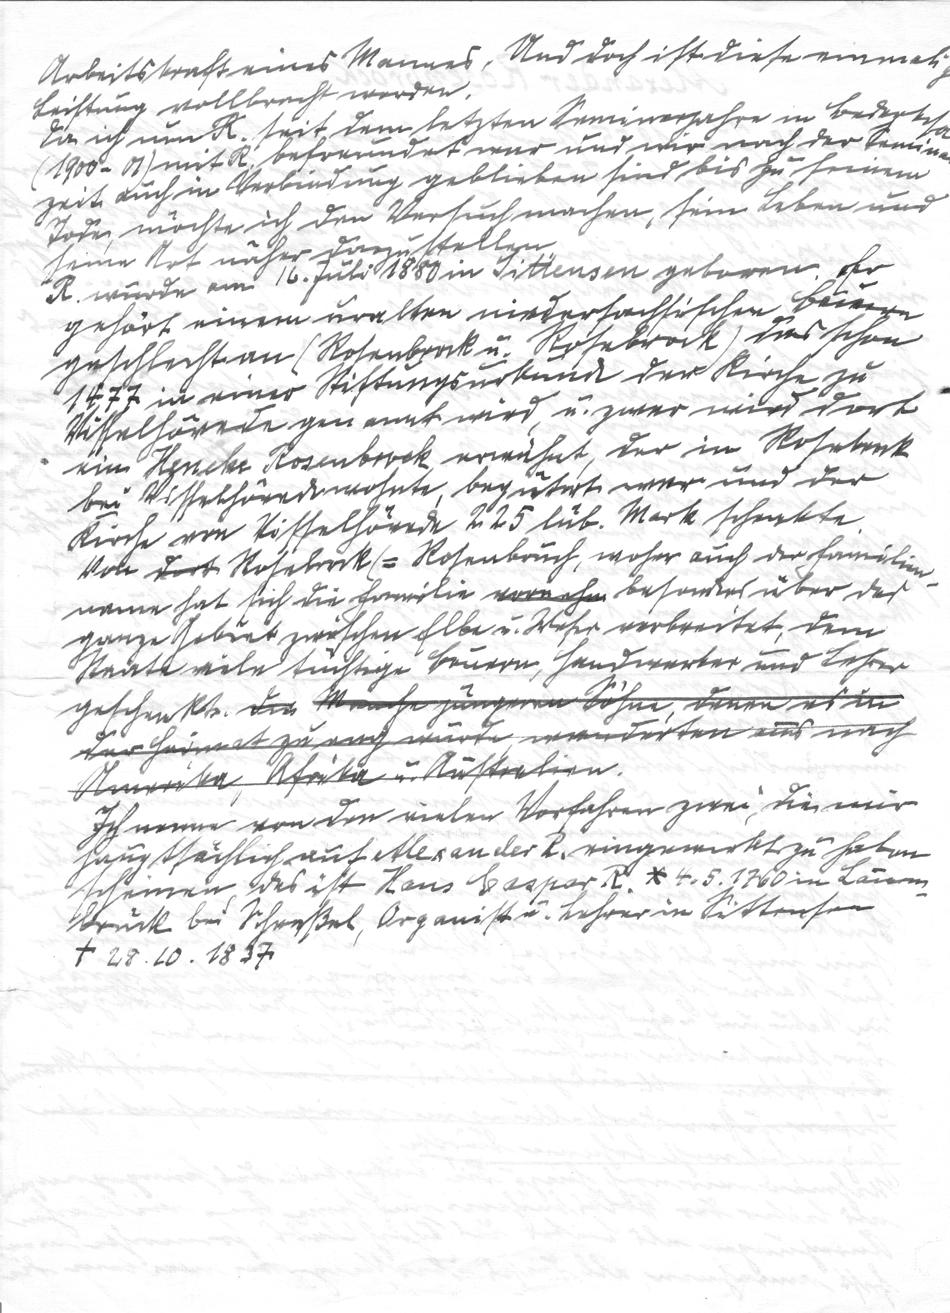 Arbeitskraft eines Mannes. Und doch ist diese einmalig
Leistung vollbracht worden.
Da ich nun R. seit dem letzten Seminarjahre in Bederkesa
(1900-01) mit R. befreundet war und wir nach der Seminar
zeit auch in Verbindung geblieben sind bis zu seinem
Tode, möchte ich den Versuch machen, sein Leben und
seine Art näher darzustellen.
R. wurde am 16. Juli 1880 in Sittensen geboren. Er
gehört einem uralten niedersächsischen Bauern
geschlecht an (Rosenbrock u. Rosebrock) das schon
1477 in einer Stiftungsurkunde der Kirche zu
Visselhövede genannt wird, u. zwar wird dort
ein Hencke Rosenbrock erwähnt, der in Rosebrock
bei Visselhövede wohnte, begütert war und der
Kirche von Visselhövede 225 lüb. Mark schenkte.
Von dort Rosebrock (= Rosenbruch, woher auch der Familien-
name hat sich die Familie vornehm besonders über das
ganze Gebiet zwischen Elbe u. Weser verbreitet, dem
Staate viele tüchtige Bauern, Handwerker und Lehrer
geschenkt. Die Manche jüngeren Söhne, denen es in
der Heimat zu eng wurde, wanderten aus nach
Amerika, Afrika u. Australien.
Ich nenne von den vielen Vorfahren zwei, die mir
hauptsächlich auf Alexander R. eingewirkt zu haben
scheinen. Das ist Hans Caspar R. * 4.5.1760 in
brück bei Scheeßel, Organist u. Lehrer in Sittensen
† 28.10.1837